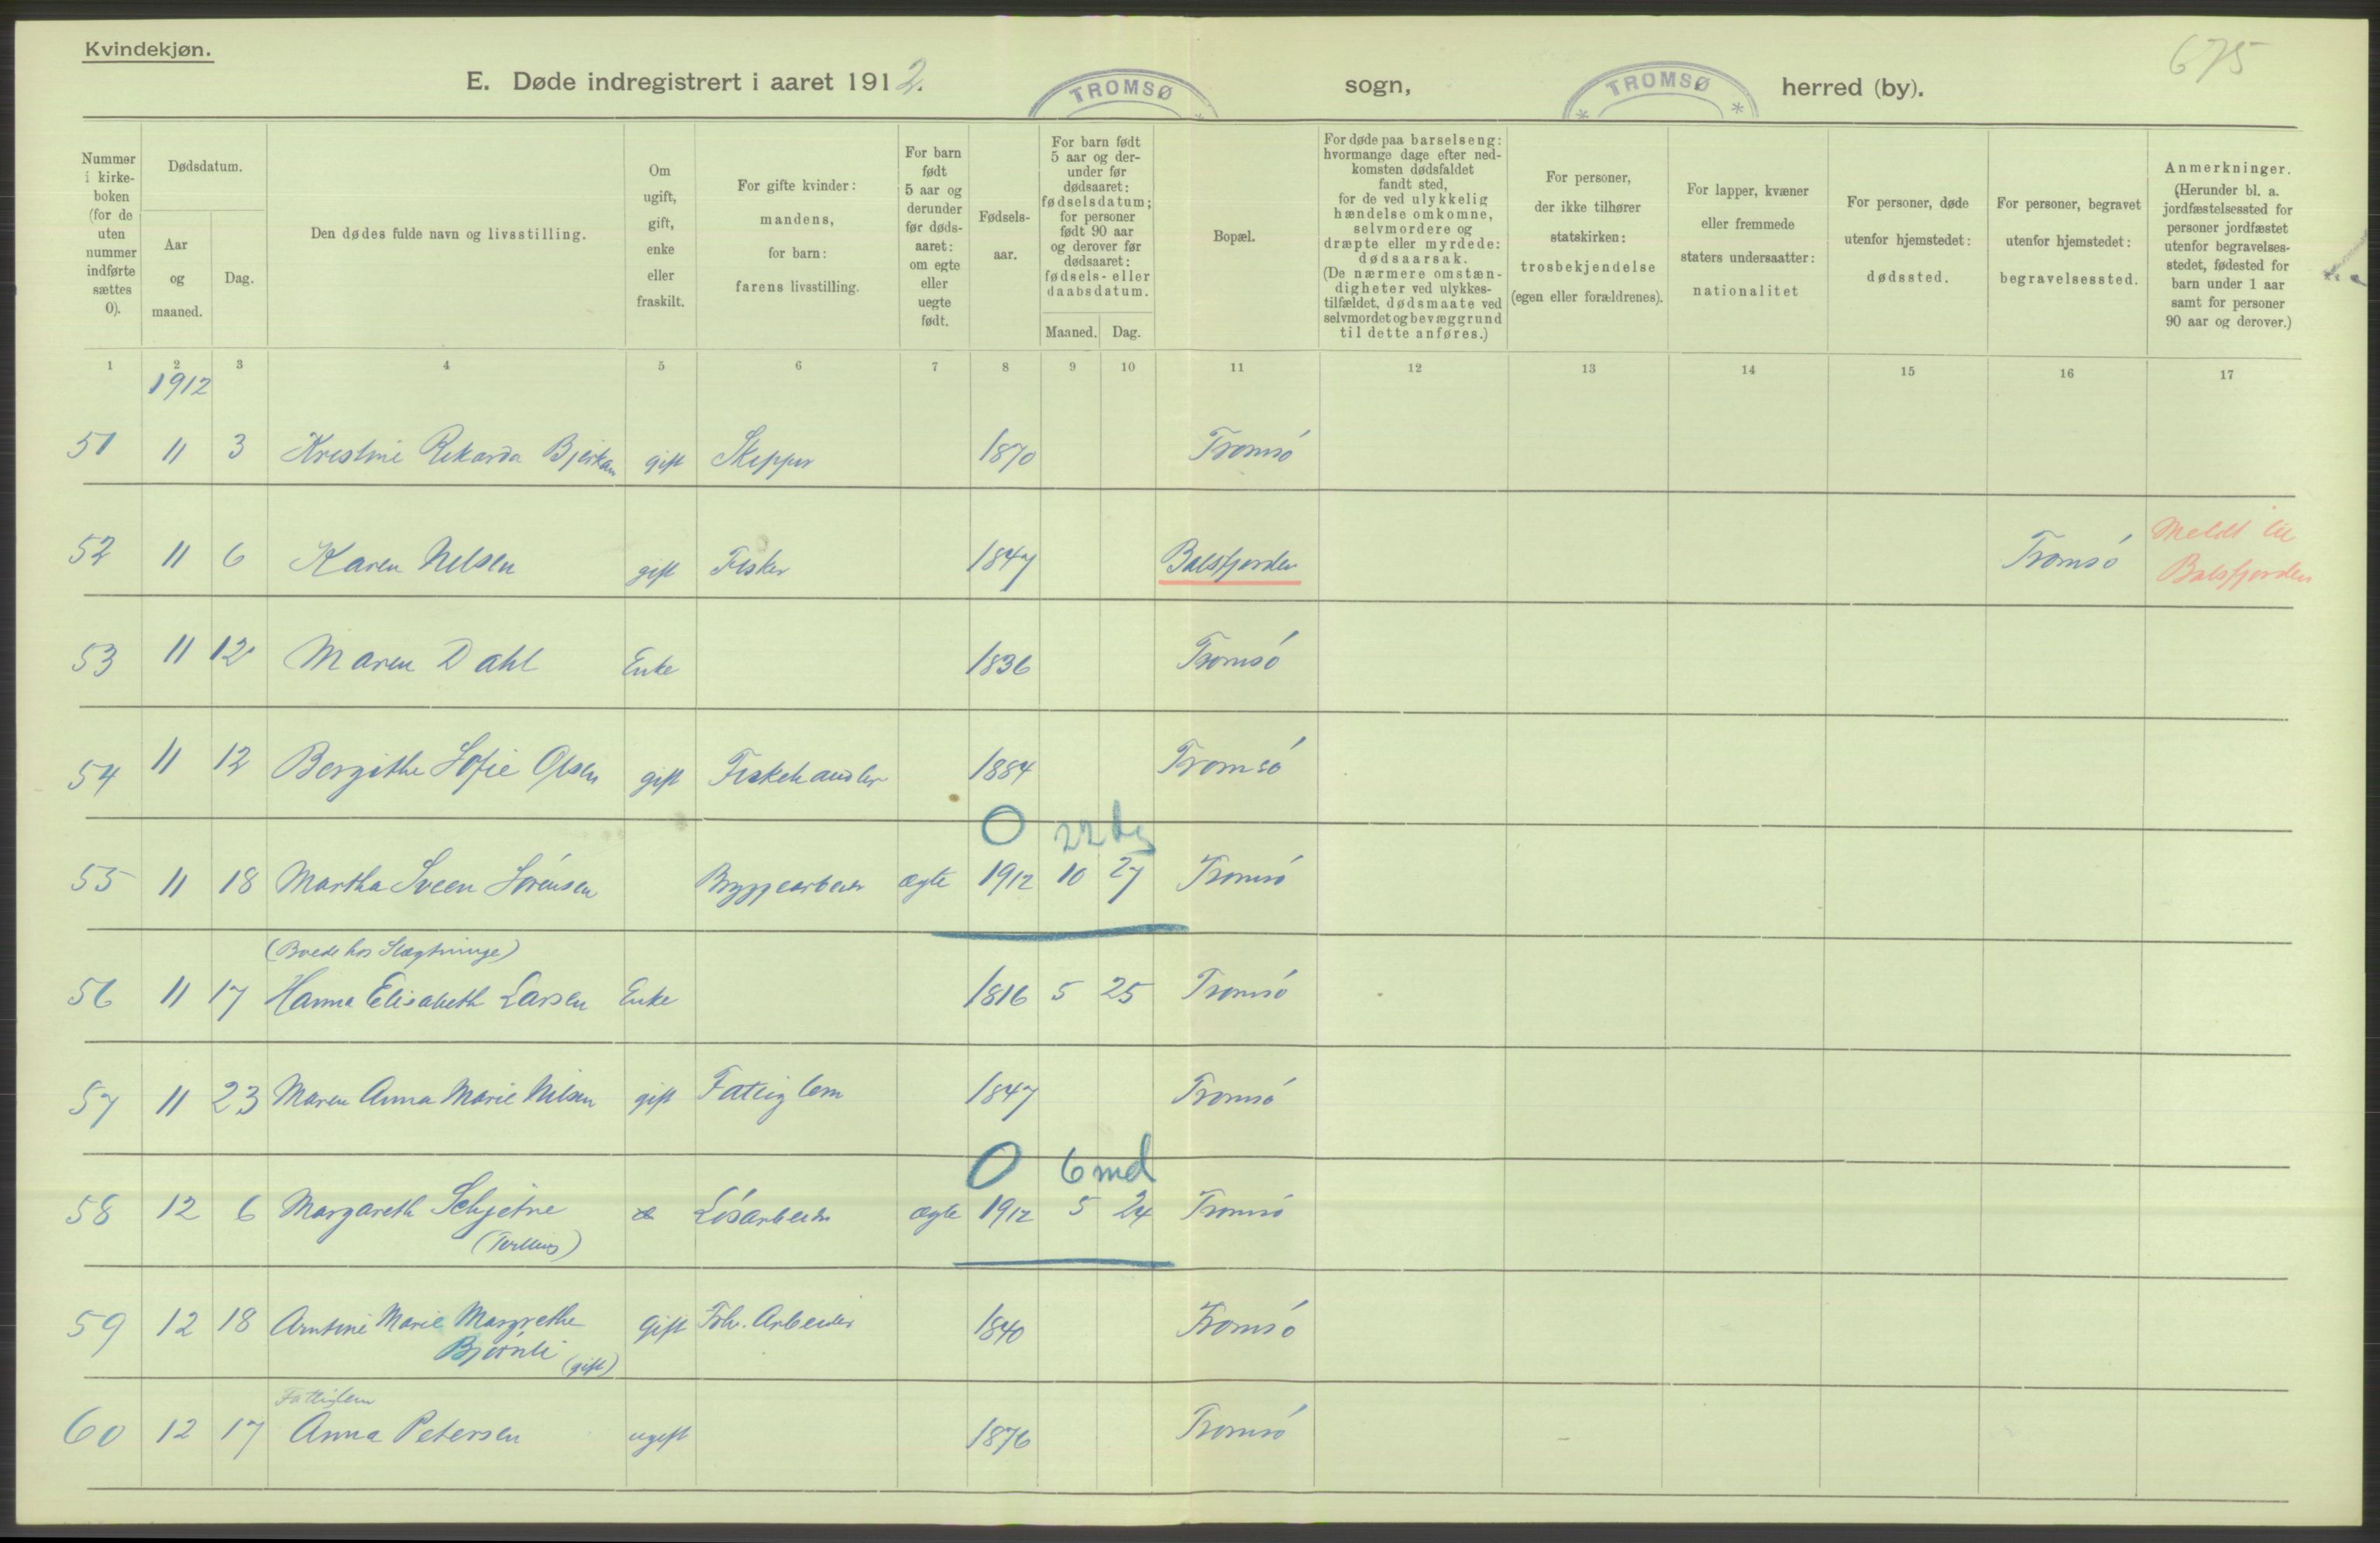 Kvindekjøn.
675
E. Døde indregistrert i aaret 1912. TROMSØ sogn, TROMSØ herred (by).
Nummer i kirke-boken (for de uten nummer indførte sættes 0).
Dødsdatum.
Aar og maaned.
Dag.
Den dødes fulde navn og livsstilling.
Om ugift, gift, enke eller fraskilt.
For gifte kvinder: mandens, for barn: farens livsstilling.
For barn født 5 aar og derunder før døds-aaret: om egte eller uegte født.
Fødsels-aar.
For barn født 5 aar og der-under før dødsaaret: fødselsdatum; for personer født 90 aar og derover før dødsaaret: fødsels- eller daabsdatum.
Maaned. Dag.
Bopæl.
For døde paa barselseng: hvormange dage efter ned-komsten dødsfaldet fandt sted, for de ved ulykkelig hændelse omkomne, selvmordere og dræpte eller myrdede: dødsaarsak. (De nærmere omstæn-digheter ved ulykkes-tilfældet, dødsmaate ved selvmordet og bevæggrund til dette anføres.)
For personer, der ikke tilhører statskirken: trosbekjendelse (egen eller forældrenes).
For lapper, kvæner eller fremmede staters undersaatter: nationalitet
For personer, døde utenfor hjemstedet: dødssted.
For personer, begravet utenfor hjemstedet: begravelsessted.
Anmerkninger. (Herunder bl. a. jordfæstelsessted for personer jordfæstet utenfor begravelses-stedet, fødested for barn under 1 aar samt for personer 90 aar og derover.)
1 2 3 4 5 6 7 8 9 10 11 12 13 14 15 16 17
1912
51 11 3 Kristine Rikarda Bjerkan gift Skipper 1870 Tromsö
52 11 6 Karen Nilsen gift Fisker 1847 Balsfjorden Tromsö Meldt til
Balsfjorden
53 11 12 Maren Dahl Enke 1836 Tromsö
54 11 12 Bergithe Sofie Olsen gift Fiskehandler 1884 Tromsö
0 22 dg
55 11 18 Martha Sveen Sörensen Bryggearbeider ægte 1912 10 27 Tromsö
(Boede hos Slægtninge)
56 11 17 Hanna Elisabeth Larsen Enke 1816 5 25 Tromsö
57 11 23 Maren Anna Marie Nilsen gift Fattiglem 1847 Tromsö
0 6 md
58 12 6 Margareth Schjetne Lösarbeider ægte 1912 5 24 Tromsö
(Tvilling)
59 12 18 Arntine Marie Margrethe gift Fhv. Arbeider 1840 Tromsö
Björnli (gift)
Fattiglem
60 12 17 Anna Petersen ugift 1876 Tromsö